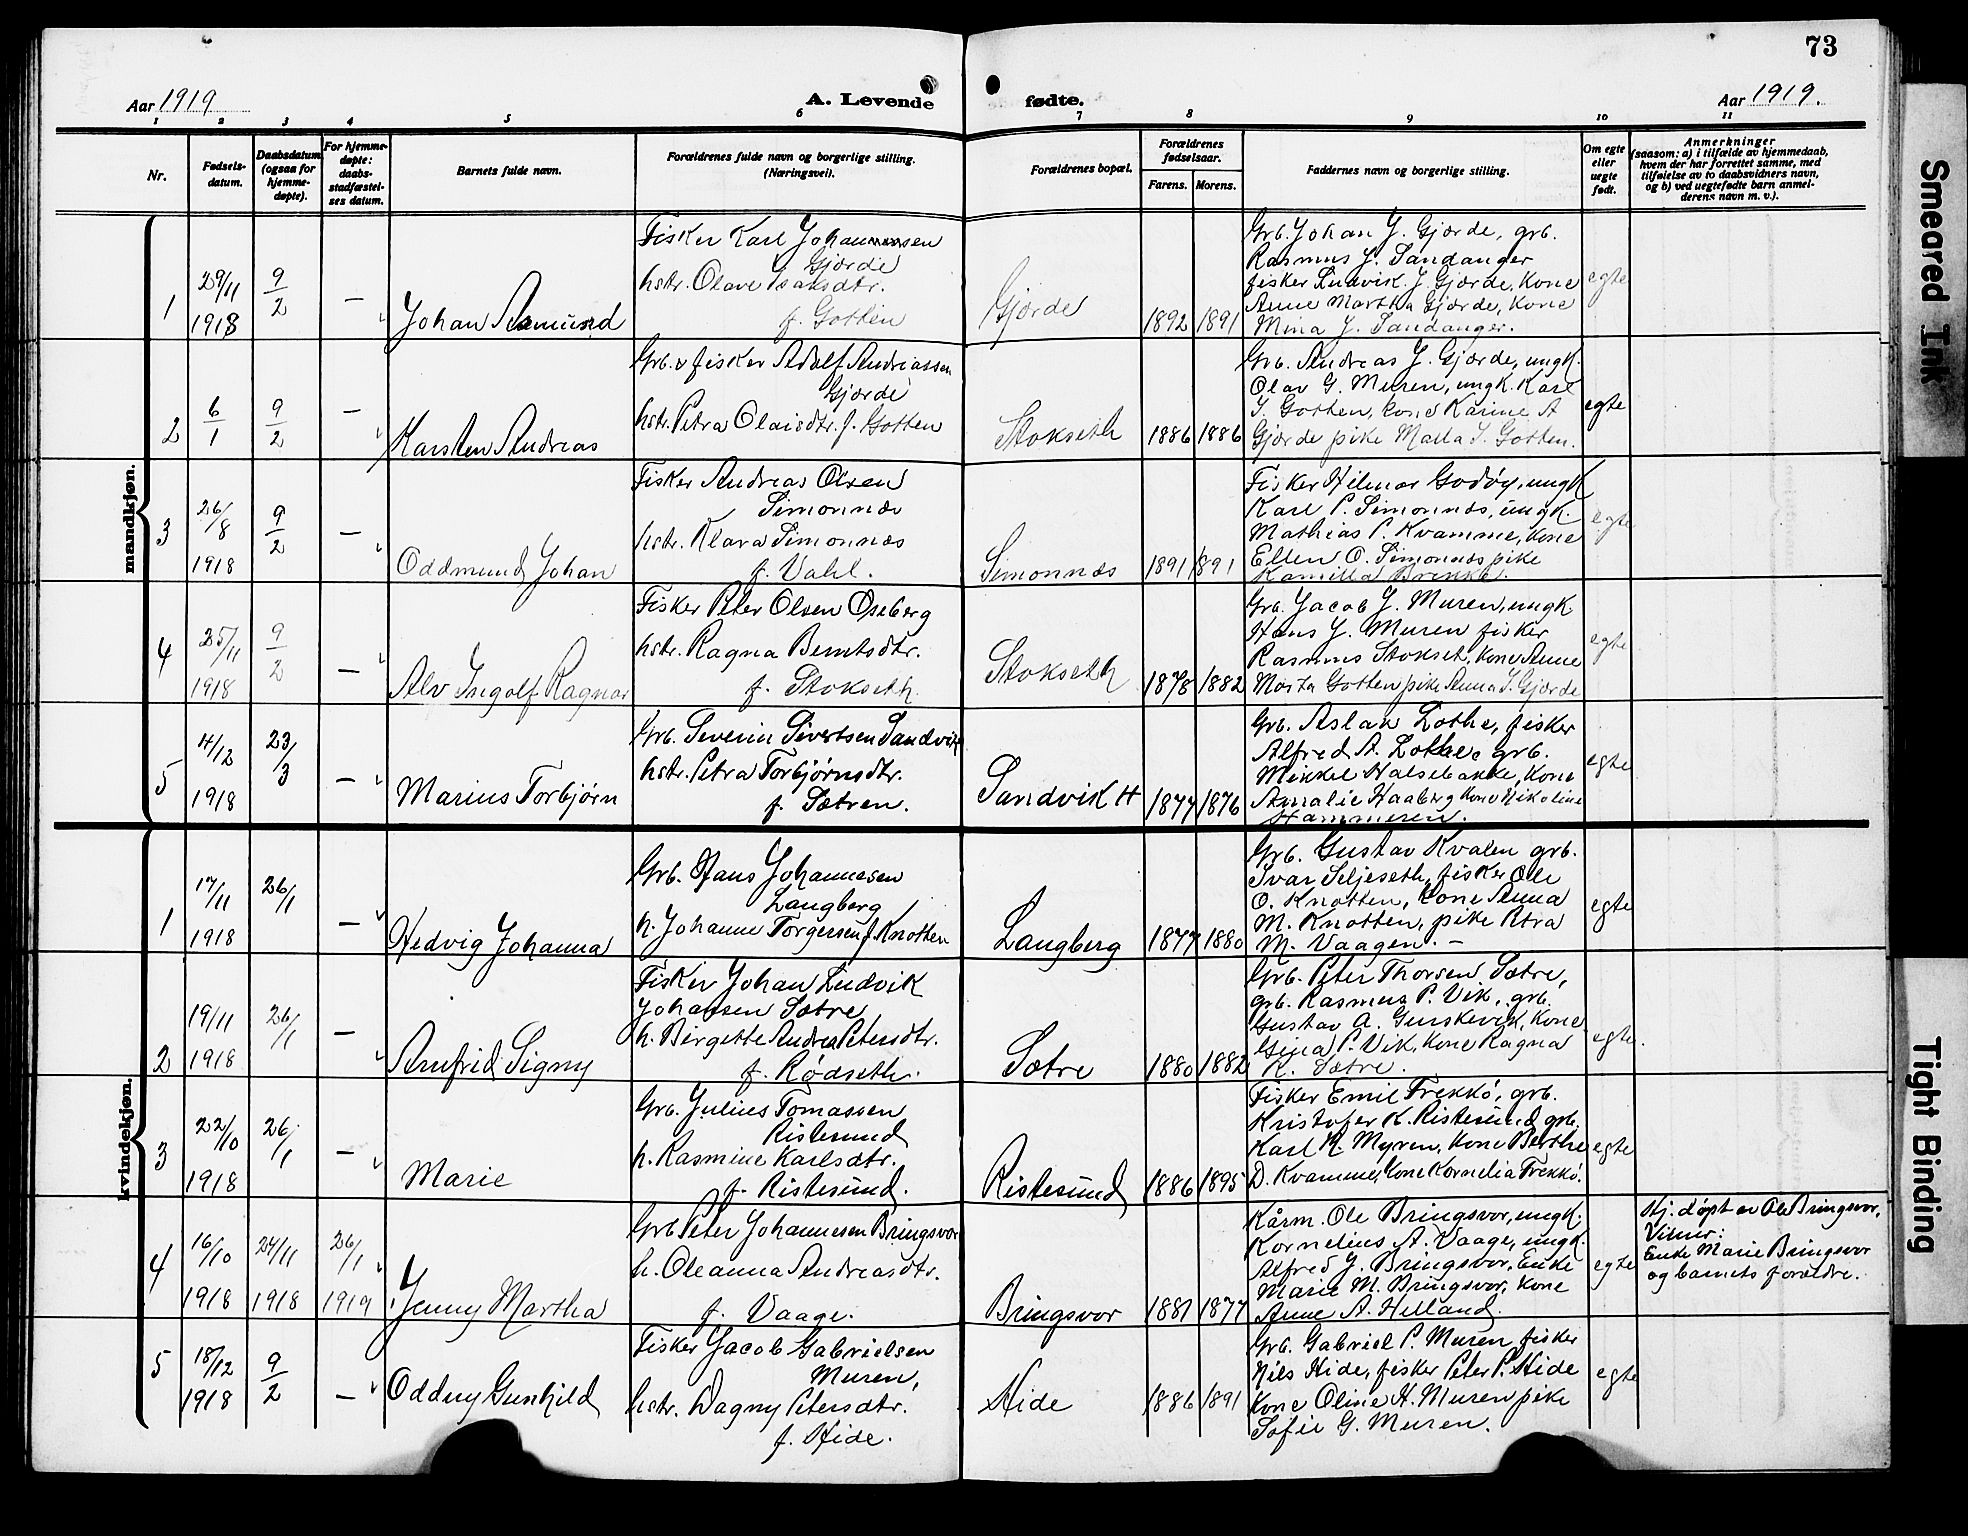 73
Aar 1919
A. Levende
fødte.
Aar 1919.
1 2 3 4 5 6 7 8 9 10 11
Nr.
Fødsels-
datum.
Daabsdatum
(ogsaa for
hjemme-
døpte).
For hjemme-
døpte:
daabs-
stadfæstel-
ses datum.
Barnets fulde navn.
Forældrenes fulde navn og borgerlige stilling.
(Næringsvei).
Forældrenes bopæl.
Forældrenes
fødselsaar.
Farens. Morens.
Faddernes navn og borgerlige stilling.
Om egte
eller
uegte
født.
Anmerkninger
(saasom: a) i tilfælde av hjemmedaab,
hvem der har forrettet samme, med
tilføielse av to daabsvidners navn,
og b) ved uegtefødte barn anmel-
derens navn m. v.).
mandkjøn.
1
29/11
1918
9/2
—
Johan Asmund
Fisker Karl Johannessen
Gjørde
hstr. Olave Isaksdtr.
f. Gotten
Gjørde
1892 1891
Grb. Johan J. Gjørde, grb.
Rasmus J. Sandanger
fisker Ludvik J. Gjørde, kone
Anne Martha Gjørde, kone
Mina J. Sandanger.
egte
2
6/1
9/2
—
Karsten Andreas
Grb. & fisker Adolf Andreassen
Gjørde
hstr. Petra Olaisdtr. f. Gotten
Stokseth
1886 1886
Grb. Andreas J. Gjørde, ungk.
Olav G. Muren, ungk. Karl
I. Gotten, kone Karine A
Gjørde pike Marta I. Gotten.
egte
3
26/8
1918
9/2
—
Oddmund Johan
Fisker Andreas Olsen
Simonnæs
hstr. Klara Simonnæs
f. Vahl.
Simonnæs
1891 1891
Fisker Hilmar Godøy, ungk
Karl P. Simonnæs, ungk.
Mathias P. Kvamme, kone
Ellen O. Simonnæs pike
Kamilla Brekke.
egte
4
25/11
1918
9/2
—
Alv Ingolf Ragnar
Fisker Peter Olsen Oseberg
hstr. Ragna Berntsdtr.
f. Stokseth.
Stokseth
1878 1882
Grb. Jacob J. Muren, ungk
Hans J. Muren fisker
Rasmus Stokset, kone Anne
Marta Gotten pike Anna I. Gjørde
egte
5
4/12
1918
23/3
—
Marius Torbjørn
Grb. Severin Sivertsen Sandvik
hstr. Petra Torbjørnsdtr.
f. Sætren.
Sandvik H
1877 1876
Grb. Aslak Lothe, fisker
Alfred A. Lothe, grb.
Mikkel Halsebakke, kone
Amalie Haaberg kone Nikoline
Hammeren.
egte
kvindekjøn.
1
17/11
1918
26/1
—
Hedvig Johanna
Grb. Hans Johannesen
Langberg
h. Johanne Torgersen f. Knotten
Langberg
1877 1880
Grb. Gustav Kvalen grb.
Ivar Seljeseth, fisker Ole
O. Knotten, kone Anna
M. Knotten, pike Petra
M. Vaagen. —
egte
2
19/11
1918
26/1
—
Arnfrid Signy
Fisker Johan Ludvik
Johansen Sætre
h. Birgette Andrea Petersdtr.
f. Rødseth.
Sætre
1880 1882
Grb. Peter Thorsen Sætre,
grb. Rasmus P. Vik, grb.
Gustav A. Gurskevik, kone
Gina P. Vik, kone Ragna
R. Sætre.
egte.
3
22/10
1918
26/1
—
Marie
Grb. Julius Tomassen
Ristesund
h. Rasmine Karlsdtr.
f. Ristesund.
Ristesund
1886 1895
Fisker Emil Frekkö, grb.
Kristofer K. Ristesund grb.
Karl R. Myren, kone Berthe
D. Kvamme, kone Kornelia Frekkö.
egte
4
16/10
1918
24/11
1918
26/1
1919
Jenny Martha
Grb Peter Johannesen Bringsvor
h. Oleanna Andreasdtr.
f. Vaage.
Bringsvor
1881 1877
Kårm. Ole Bringsvor, ungk.
Kornelius A. Vaage, ungk.
Alfred J. Bringsvor, Enke
Marie M. Bringsvor, kone
Anne A. Helland.
egte
Hj. døpt av Ole Bringsvor.
Vitner:
Enke Marie Bringsvor
og barnets forældre.
5
18/12
1918
9/2
—
Oddny Gunhild
Fisker Jacob Gabrielsen
Muren,
hstr. Dagny Petersdtr.
f. Hide.
Hide
1886 1891
Grb. Gabriel P. Muren fisker
Nils Hide, fisker Peter P. Hide
kone Oline H. Muren pike
Sofie G. Muren.
egte
Smeared Ink
Tight Binding